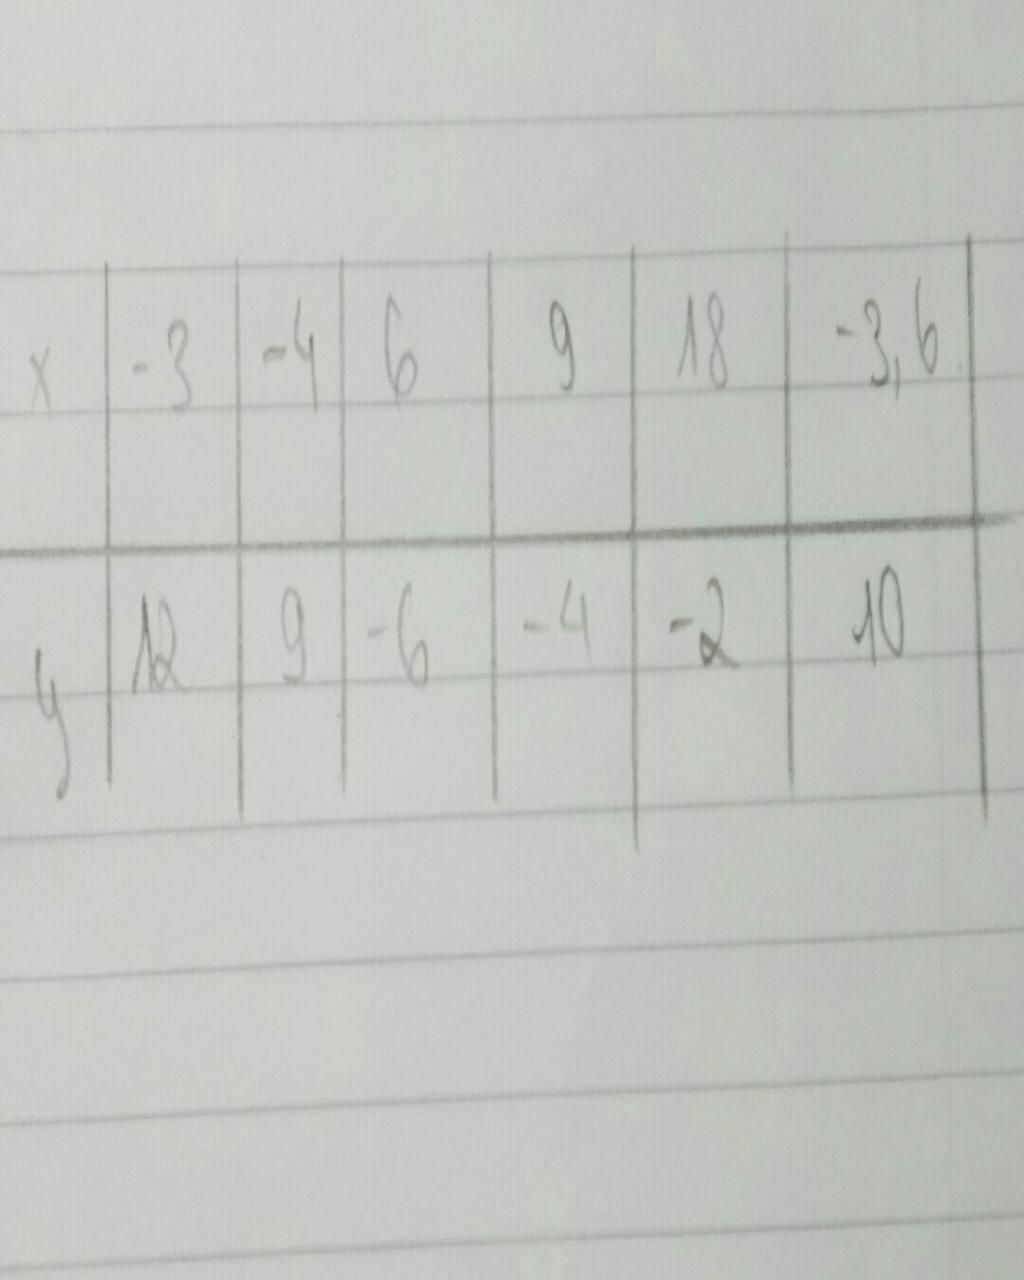 x -3 -4 6 9 18 -3,6
y 12 9 -6 -4 -2 10